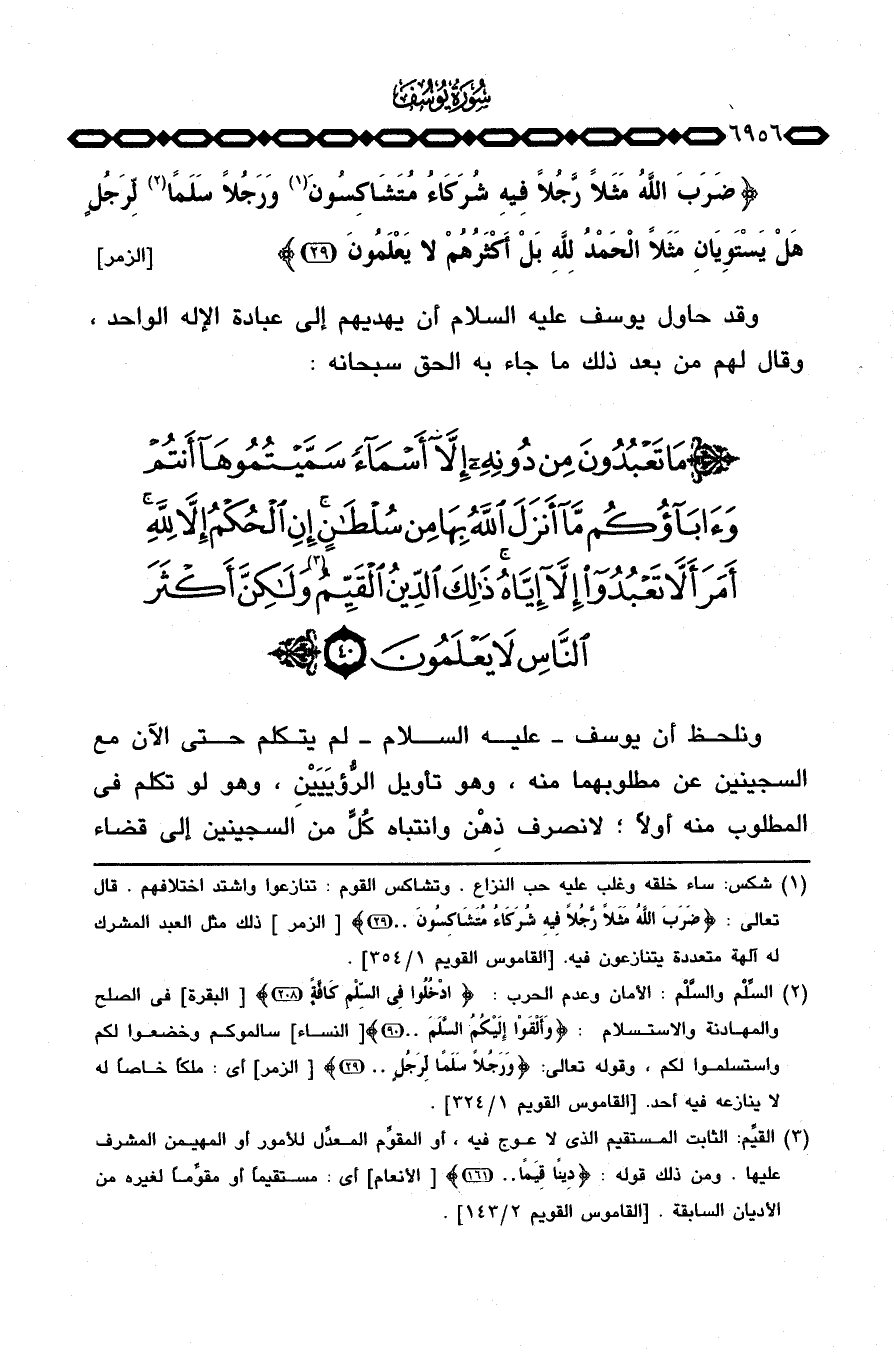 سورة يوسف
٦٩٥٦
﴿ ضَرَبَ اللَّهُ مَثَلاً رَّجُلاً فِيهِ شُرَكَاءُ مُتَشَاكِسُونَ(١) وَرَجُلاً سَلَمًا(٢) لِّرَجُلٍ
هَلْ يَسْتَوِيَانِ مَثَلاً الْحَمْدُ لِلَّهِ بَلْ أَكْثَرُهُمْ لا يَعْلَمُونَ (٢٩) ﴾ [الزمر]
وقد حاول يوسف عليه السلام أن يهديهم إلى عبادة الإله الواحد ،
وقال لهم من بعد ذلك ما جاء به الحق سبحانه :
﴿ مَا تَعْبُدُونَ مِن دُونِهِۦٓ إِلَّآ أَسْمَآءً سَمَّيْتُمُوهَآ أَنتُمْ
وَءَابَآؤُكُم مَّآ أَنزَلَ ٱللَّهُ بِهَا مِن سُلْطَٰنٍۚ إِنِ ٱلْحُكْمُ إِلَّا لِلَّهِۚ
أَمَرَ أَلَّا تَعْبُدُوٓاْ إِلَّآ إِيَّاهُۚ ذَٰلِكَ ٱلدِّينُ ٱلْقَيِّمُ(٣) وَلَٰكِنَّ أَكْثَرَ
ٱلنَّاسِ لَا يَعْلَمُونَ ٤٠ ﴾
ونلحظ أن يوسف - عليه السلام - لم يتكلم حتى الآن مع
السجينين عن مطلوبهما منه ، وهو تأويل الرُّؤييَيْن ، وهو لو تكلم فى
المطلوب منه أولاً ؛ لانصرف ذِهْن وانتباه كُلٍّ من السجينين إلى قضاء
(١) شكس: ساء خلقه وغلب عليه حب النزاع . وتشاكس القوم : تنازعوا واشتد اختلافهم . قال
تعالى : ﴿ ضَرَبَ اللَّهُ مَثَلاً رَّجُلاً فِيهِ شُرَكَاءُ مُتَشَاكِسُونَ ..(٢٩)﴾ [ الزمر ] ذلك مثل العبد المشرك
له آلهة متعددة يتنازعون فيه. [القاموس القويم ٣٥٤/١] .
(٢) السِّلْم والسَّلْم : الأمان وعدم الحرب : ﴿ ادْخُلُوا فِي السِّلْمِ كَافَّةً (٢٠٨)﴾ [ البقرة] فى الصلح
والمهادنة والاستسلام : ﴿وَأَلْقَوْا إِلَيْكُمُ السَّلَمَ ..(٩٠)﴾[ النساء] سالموكم وخضعوا لكم
واستسلموا لكم ، وقوله تعالى: ﴿وَرَجُلاً سَلَمًا لِّرَجُلٍ .. (٢٩)﴾ [ الزمر] أى : ملكاً خاصاً له
لا ينازعه فيه أحد. [القاموس القويم ٣٢٤/١] .
(٣) القيِّم: الثابت المستقيم الذى لا عوج فيه ، أو المقوِّم المعدِّل للأمور أو المهيمن المشرف
عليها . ومن ذلك قوله : ﴿دِينًا قِيَمًا.. (١٦١)﴾ [ الأنعام] أى : مستقيماً أو مقوِّماً لغيره من
الأديان السابقة . [القاموس القويم ١٤٣/٢] .